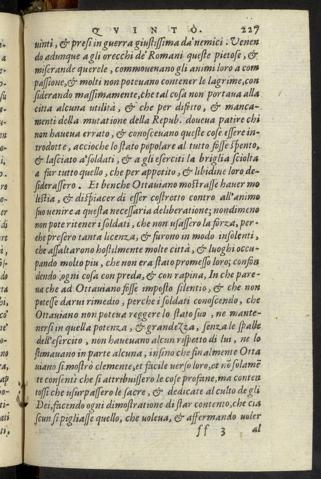 QVINTO. 227
uinti, & presi in guerra giustissima da' nemici. Venen
do adunque a gli orecchi de' Romani queste pietose, &
miserande querele, commoueuano gli animi loro a com
passione, & molti non poteuano contener le lagrime, con
siderando massimamente, che tal cosa non portaua alla
città alcuna utilità, & che per difetto, & manca-
mento della mutatione della Repub. doueua patire chi
non haueua errato, & conosceuano queste cose essere in-
trodotte, accioche lo stato popolare al tutto fosse spento,
& lasciato a' soldati, & a gli eserciti la briglia sciolta
a far tutto quello, che per appetito, & libidine loro de-
siderassero. Et benche Ottauiano mostrasse hauer mo
lestia, & dispiacer di esser costretto contro all'animo
suo uenire a questa necessaria deliberatione; nondimeno
non pote ritener i soldati, che non usassero la forza, per-
che presero tanta licenza, & furono in modo insolenti,
che assaltarono hostilmente molte città, & luoghi occu-
pando molto piu, che non era stato promesso loro; confon
dendo ogni cosa con preda, & con rapina, In che pare-
na che ad Ottauiano fosse imposto silentio, & che non
potesse darui rimedio, perche i soldati conoscendo, che
Ottauiano non poteua reggere lo stato suo, ne mante-
nersi in quella potenza, & grandezza, senza le spalle
dell'esercito, non haueuano alcun rispetto di lui, ne lo
stimauano in parte alcuna, insino che finalmente Otta
uiano si mostrò clemente, et facile uerso loro, et nō solamē
te consentì che si attribuissero le cose profane, ma conten
tossi che usurpassero le sacre, & dedicate al culto de gli
Dei, facendo ogni dimostratione di star contento, che cia
scun si pigliasse quello, che uoleua, & affermando uoler
ff 3 al